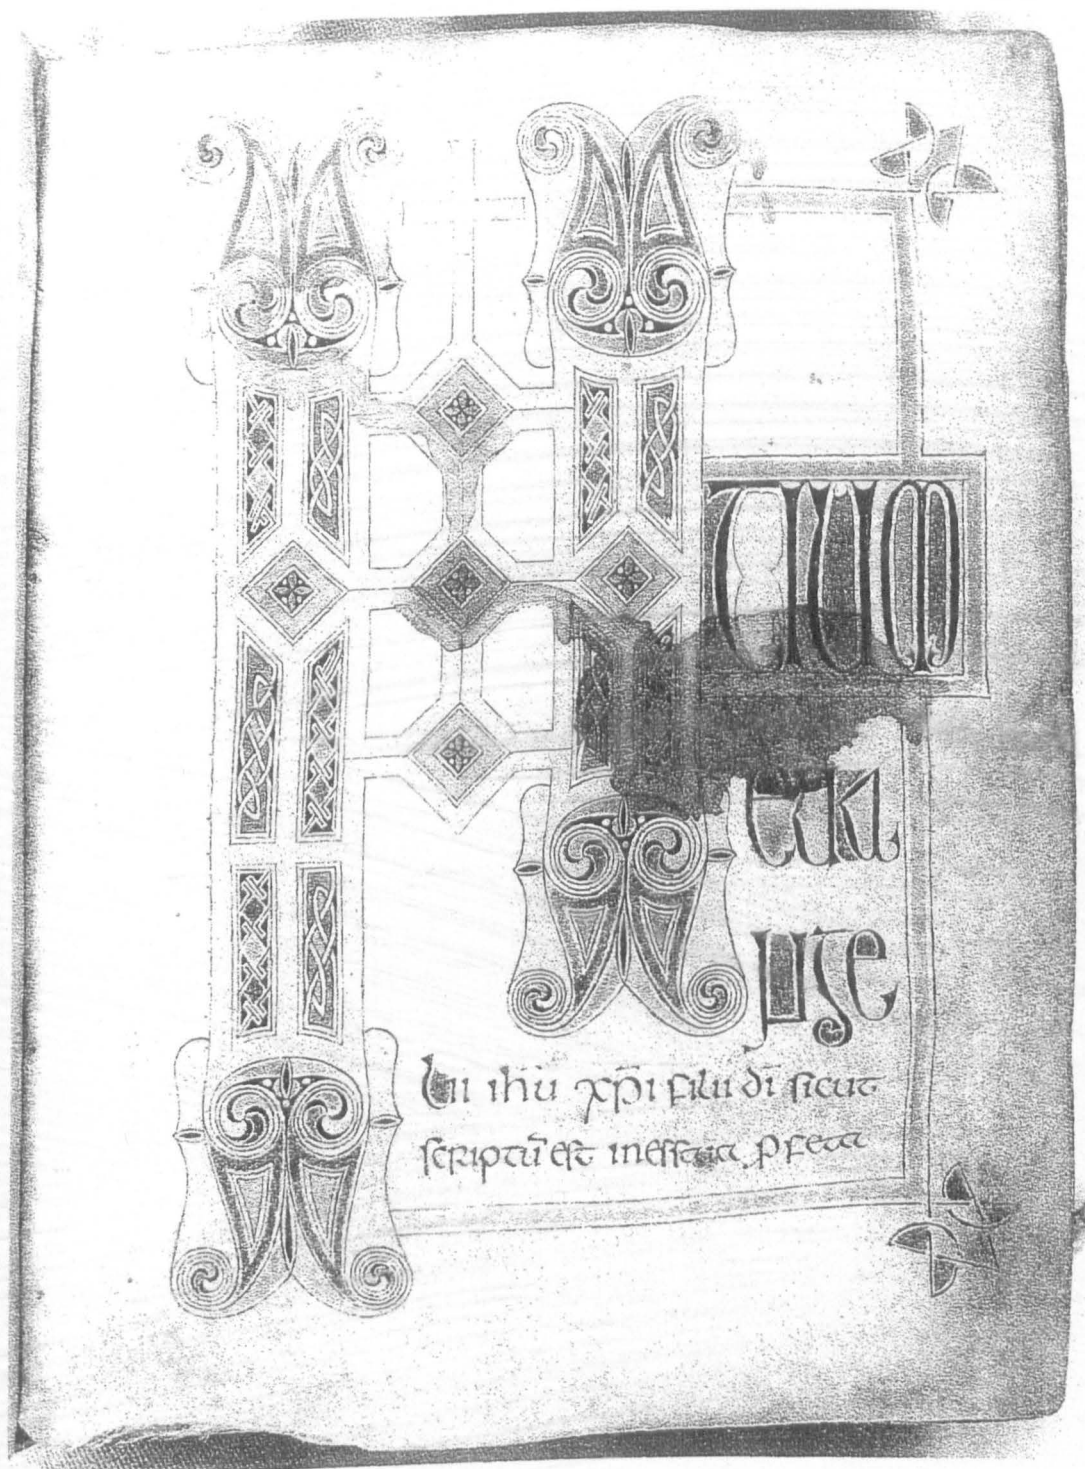 INI
TIUM
eua
nge
lii ihū xp̄i filii dī sicut
scriptū est inessaia ꝓfeta